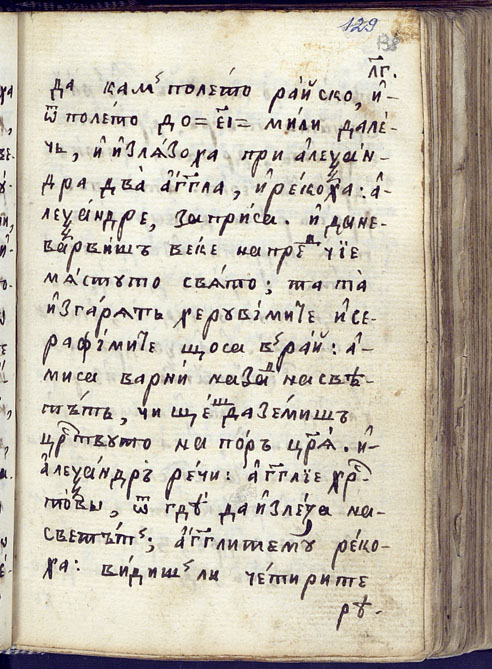 129
138
л҃г.
да камъ полето райско, и҆-
ѿ полето до = е҃і = мили дале-
чь, и҆ излязоха при алеѯан-
дра два а҆гг҃ла, и҆ рекоха: а҆-
леѯандре, заприса. и҆ да не-
варвишъ веке напре чіе
мястуто свято; та та
изгарятъ херувімите и҆ се-
рафімите щоса в рай: а҆-
миса варни назад на свѣ-
тътъ, чи ще да земишъ
црⷭтвуто на поръ цр҃я. и҆-
алеѯандръ речи: а҆гг҃ліе хрⷭ-
товы, ѿ гдѣ да излеѯа на-
светътъ; а҆гг҃лите му реко-
ха: видишъ ли четирите
рѣ-